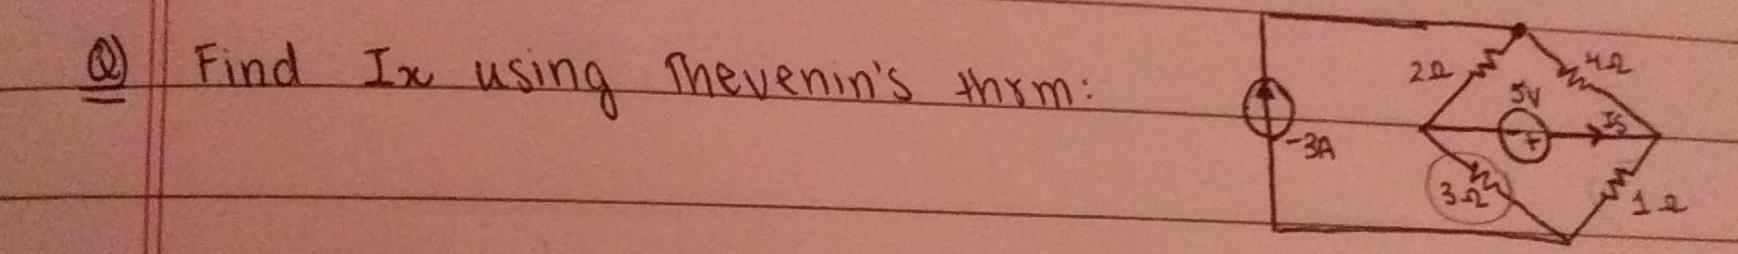 Q) Find Ix using Thevenin's thrm:
2Ω 4Ω
5V
- + I5
-3A
3Ω 1Ω